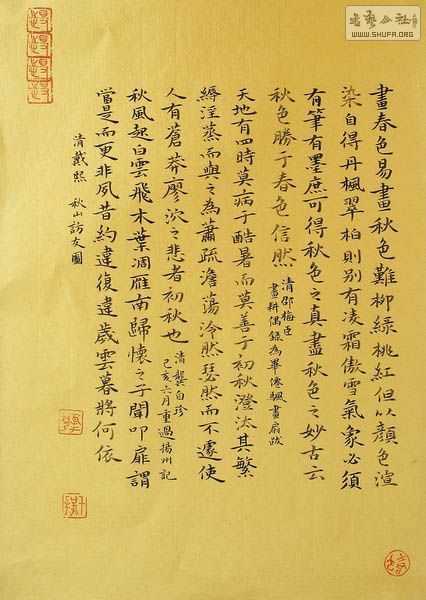 畫春色易畫秋色難柳綠桃紅但以顏色渲
染自得丹楓翠柏則別有凌霜傲雪氣象必須
有筆有墨庶可得秋色之真盡秋色之妙古云
秋色勝于春色信然
清邵梅臣
畫耕偶錄為畢僊颿畫扇跋
天地有四時莫病于酷暑而莫善于初秋澄汰其繁
縟淫蒸而與之為蕭疏澹蕩泠然瑟然而不遽使
人有蒼莽廖泬之悲者初秋也
清龔自珍
己亥六月重過揚州記
秋風起白雲飛木葉凋雁南歸懷之子閒叩扉謂
當是而更非夙昔約違復違歲雲暮將何依
清戴熙 秋山訪友圖
WWW.SHUFA.ORG